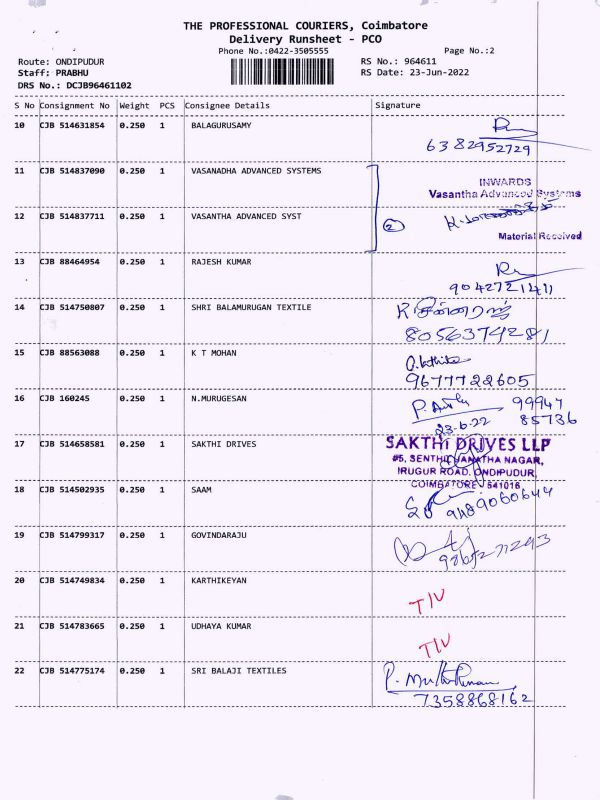 THE PROFESSIONAL COURIERS, Coimbatore
Delivery Runsheet - PCO
Phone No.:0422-3505555
Page No.:2
Route: ONDIPUDUR
RS No.: 964611
Staff: PRABHU
RS Date: 23-Jun-2022
DRS No.: DCJB96461102
S No Consignment No Weight PCS Consignee Details Signature
10 CJB 514631854 0.250 1 BALAGURUSAMY
6382952729
11 CJB 514837090 0.250 1 VASANADHA ADVANCED SYSTEMS
INWARDS
Vasantha Advanced Systems
12 CJB 514837711 0.250 1 VASANTHA ADVANCED SYST
2
Material Received
13 CJB 88464954 0.250 1 RAJESH KUMAR
9042721411
14 CJB 514750807 0.250 1 SHRI BALAMURUGAN TEXTILE
8056374281
15 CJB 88563088 0.250 1 K T MOHAN
9677722605
16 CJB 160245 0.250 1 N.MURUGESAN
99947
85736
23-6-22
17 CJB 514658581 0.250 1 SAKTHI DRIVES
SAKTHI DRIVES LLP
#5, SENTHIL JANATHA NAGAR,
IRUGUR ROAD, ONDIPUDUR,
COIMBATORE - 641016
18 CJB 514502935 0.250 1 SAAM
9489060644
19 CJB 514799317 0.250 1 GOVINDARAJU
20 CJB 514749834 0.250 1 KARTHIKEYAN
TIV
21 CJB 514783665 0.250 1 UDHAYA KUMAR
TIV
22 CJB 514775174 0.250 1 SRI BALAJI TEXTILES
7358868162